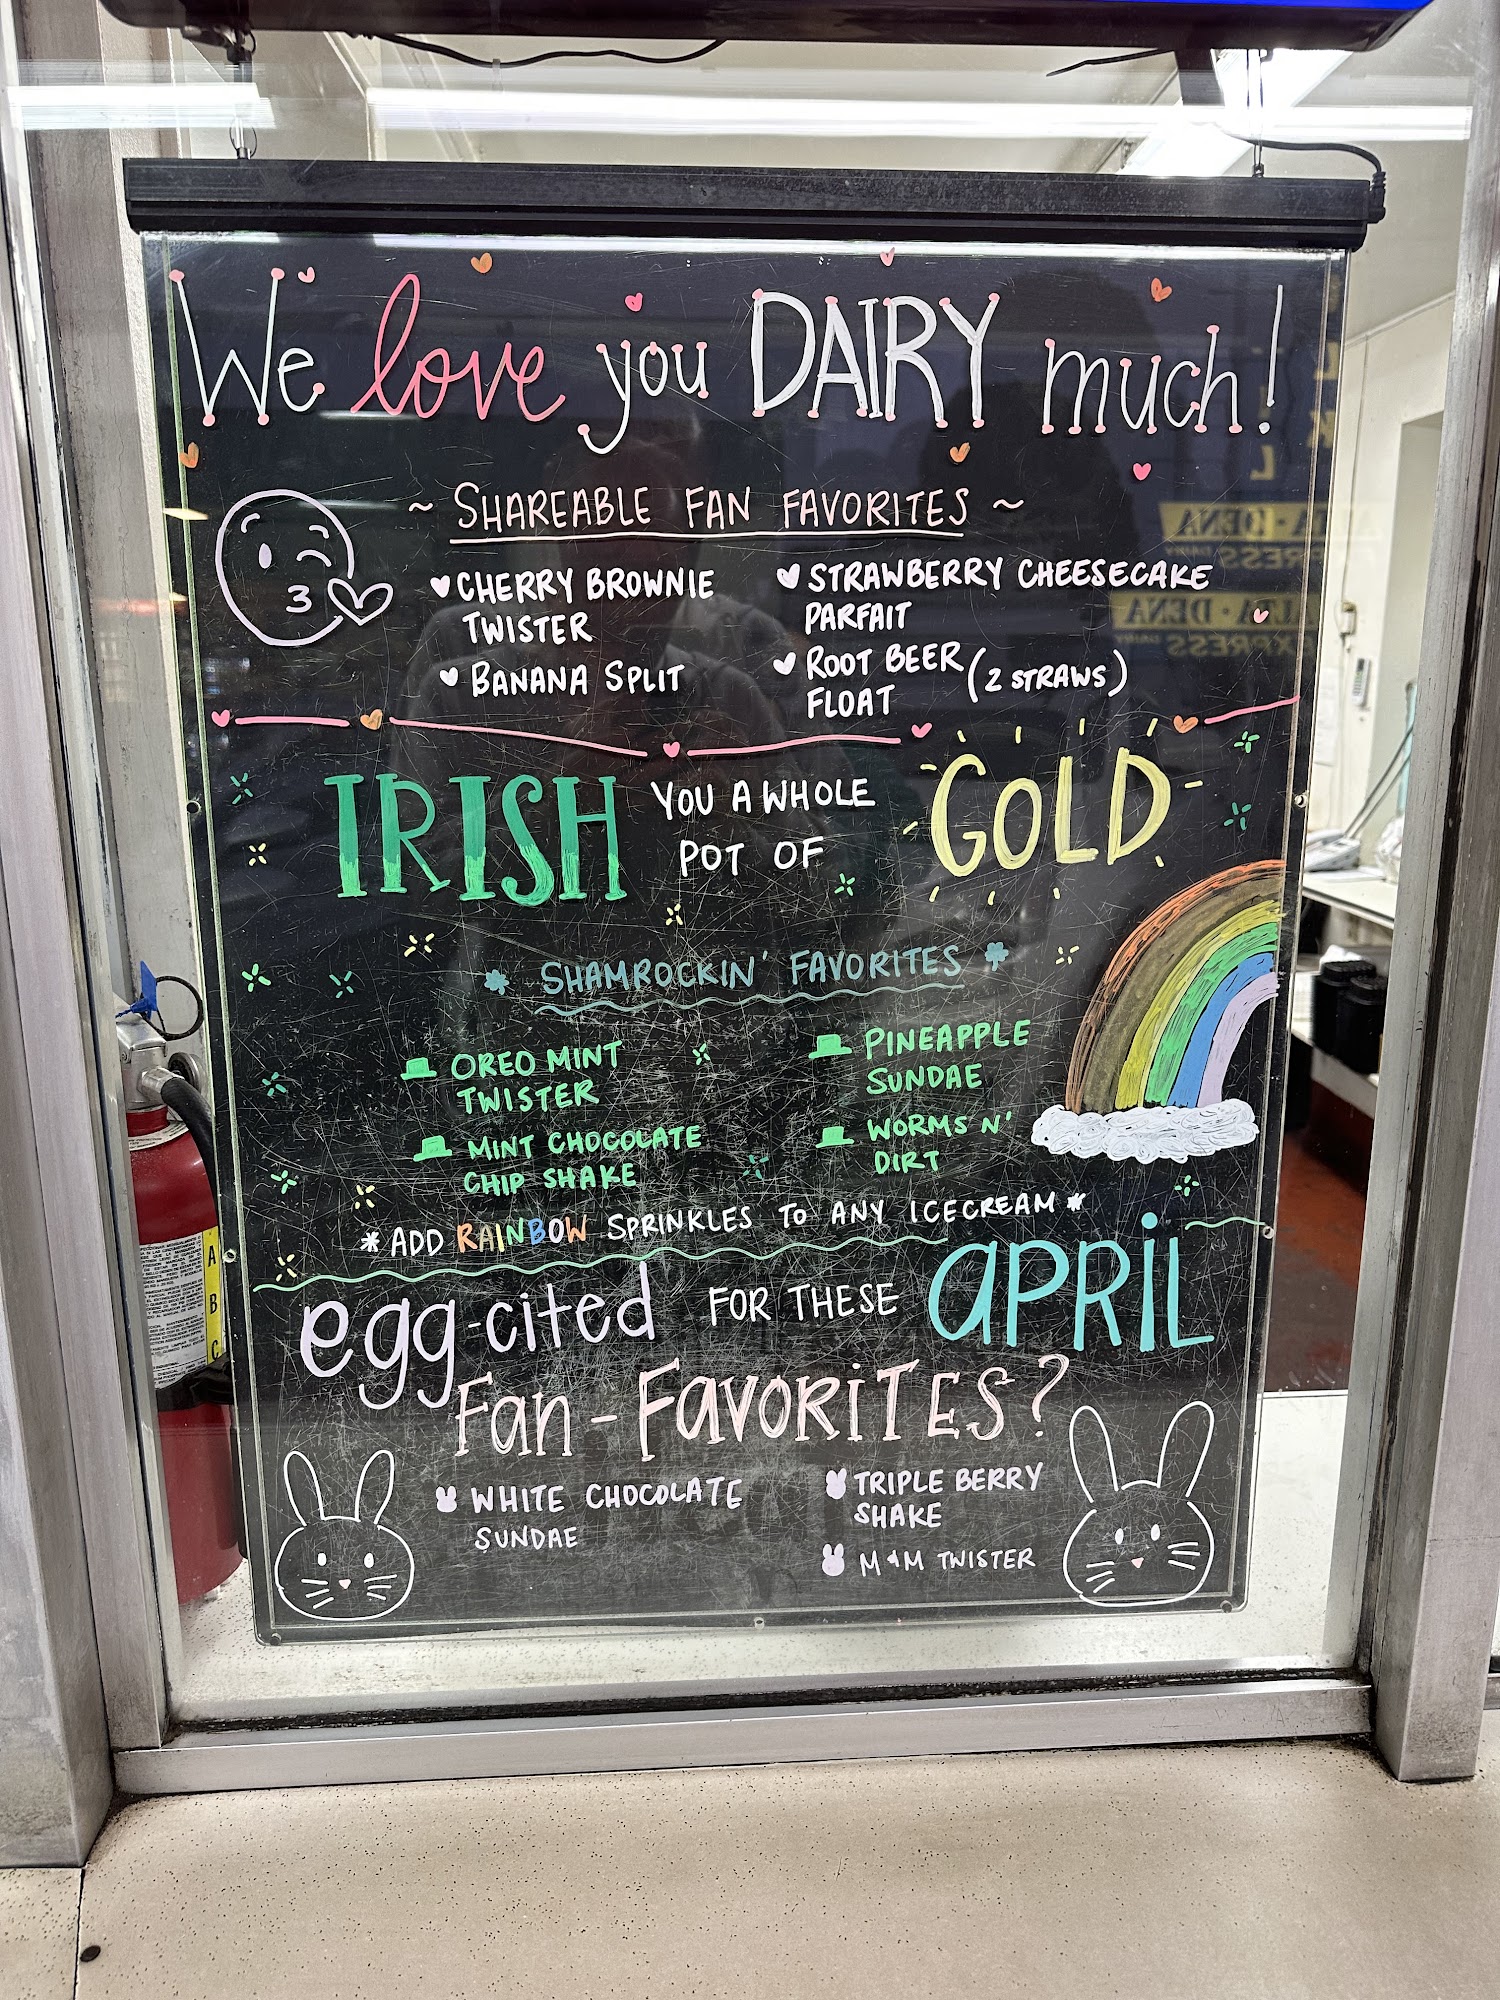 We love you DAIRY much!
~ SHAREABLE FAN FAVORITES ~
CHERRY BROWNIE
TWISTER
BANANA SPLIT
STRAWBERRY CHEESECAKE
PARFAIT
ROOT BEER
FLOAT
(2 STRAWS)
IRISH YOU A WHOLE
POT OF
GOLD
SHAMROCKIN' FAVORITES
OREO MINT
TWISTER
MINT CHOCOLATE
CHIP SHAKE
PINEAPPLE
SUNDAE
WORMS N'
DIRT
* ADD RAINBOW SPRINKLES TO ANY ICECREAM *
egg-cited FOR THESE APRIL
Fan-FavoRiTES?
WHITE CHOCOLATE
SUNDAE
TRIPLE BERRY
SHAKE
M&M TWISTER
A
B
C
ALTA·DENA
EXPRESS